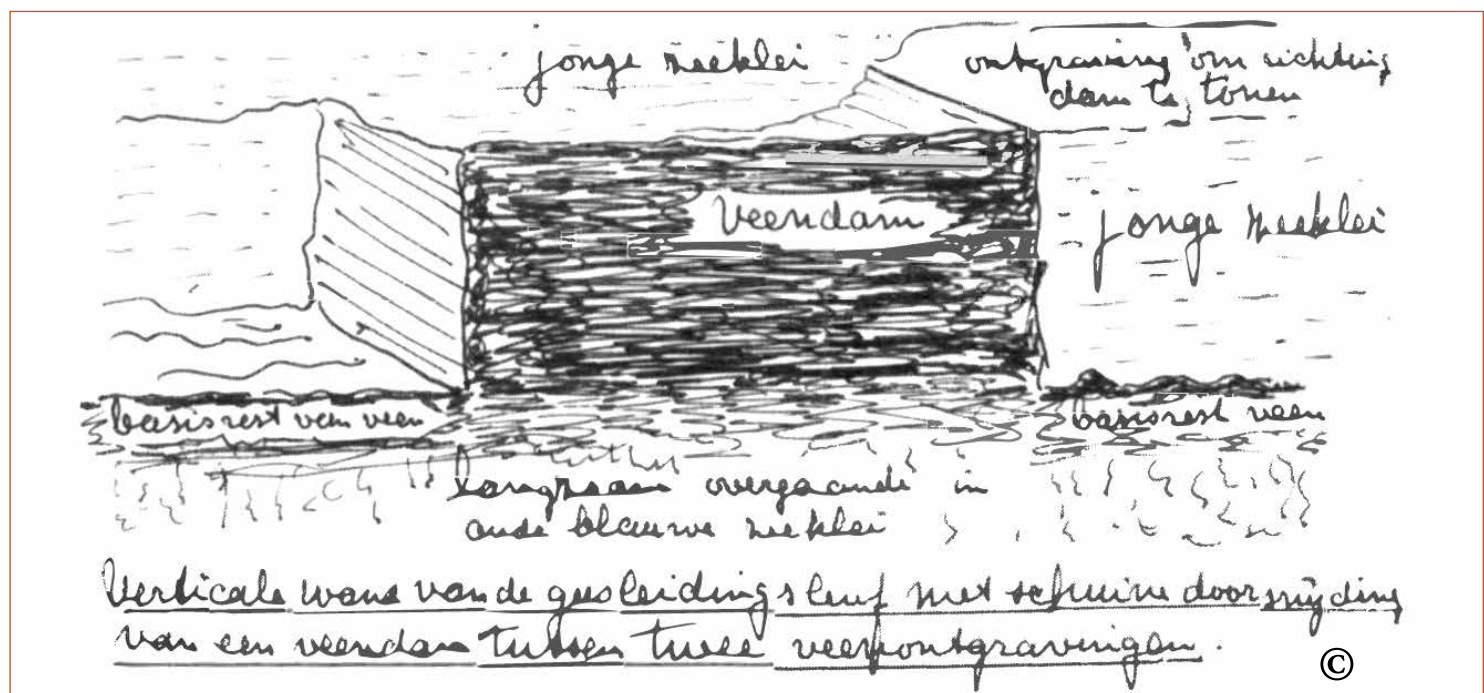 jonge zeeklei
ontgraving om richting
dam te tonen
Veendam
jonge zeeklei
basisrest van veen
basisrest veen
langzaam overgaande in
oude blauwe zeeklei
Verticale wand van de gasleidingsleuf met schuine doorsnijding
van een veendam tussen twee veenontgravingen.
©